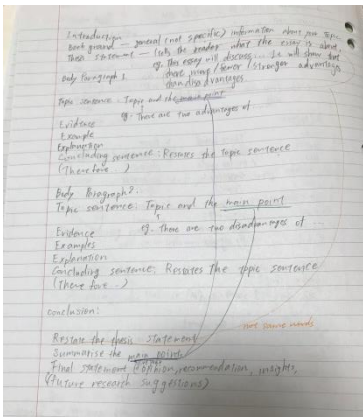 Introduction
Background — general (not specific) information about your topic
Thesis statement — (tells the reader what the essay is about,
eg. This essay will discuss... It will show that
there many/fewer/stronger advantages
than disadvantages
Body Paragraph 1
Topic sentence: Topic and the main point
eg: There are two advantages of
Evidence
Example
Explanation
Concluding sentence: Restates the Topic sentence
(Therefore ..)
Body Paragraph 2:
Topic sentence: Topic and the main point
eg. There are two disadvantages of ...
Evidence
Examples
Explanation
Concluding sentence: Restates the topic sentence
(Therefore ..)
conclusion:
not same words
Restate the thesis statement
Summarise the main points
Final statement (opinion, recommendation, insights,
(future research suggestions)